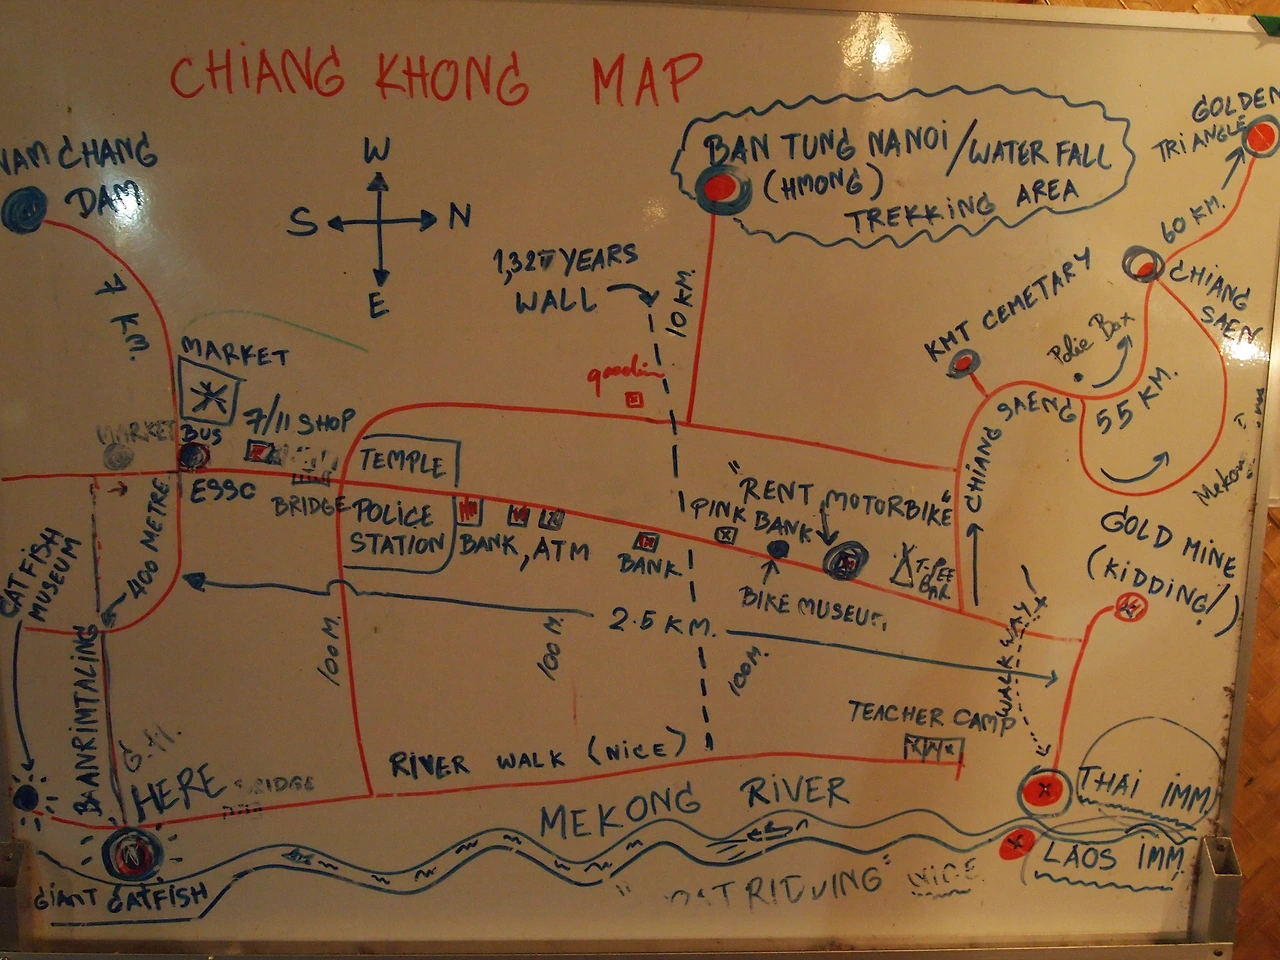 CHIANG KHONG MAP
GOLDEN
TRIANGLE
NAM CHANG
DAM
W
S
N
E
BAN TUNG NANOI / WATER FALL
(HMONG)
TREKKING AREA
60 KM.
1,327 YEARS
WALL
10 KM.
CHIANG
SAEN
KMT CEMETARY
7 KM.
MARKET
Polie Box
55 KM.
7/11 SHOP
MARKET
BUS
TEMPLE
CHIANG SAENG
ESSO
BRIDGE
POLICE
STATION
BANK, ATM
BANK
PINK BANK
"RENT MOTORBIKE"
BIKE MUSEUM
T-PEE
BAR
GOLD MINE
(KIDDING!)
CATFISH
MUSEUM
400 METRE
2.5 KM.
100 M.
100 M.
100 M.
WALK WAY
BANRIMTALING
TEACHER CAMP
RIVER WALK (NICE)
HERE
MEKONG RIVER
THAI IMM
LAOS IMM
GIANT CATFISH
NICE